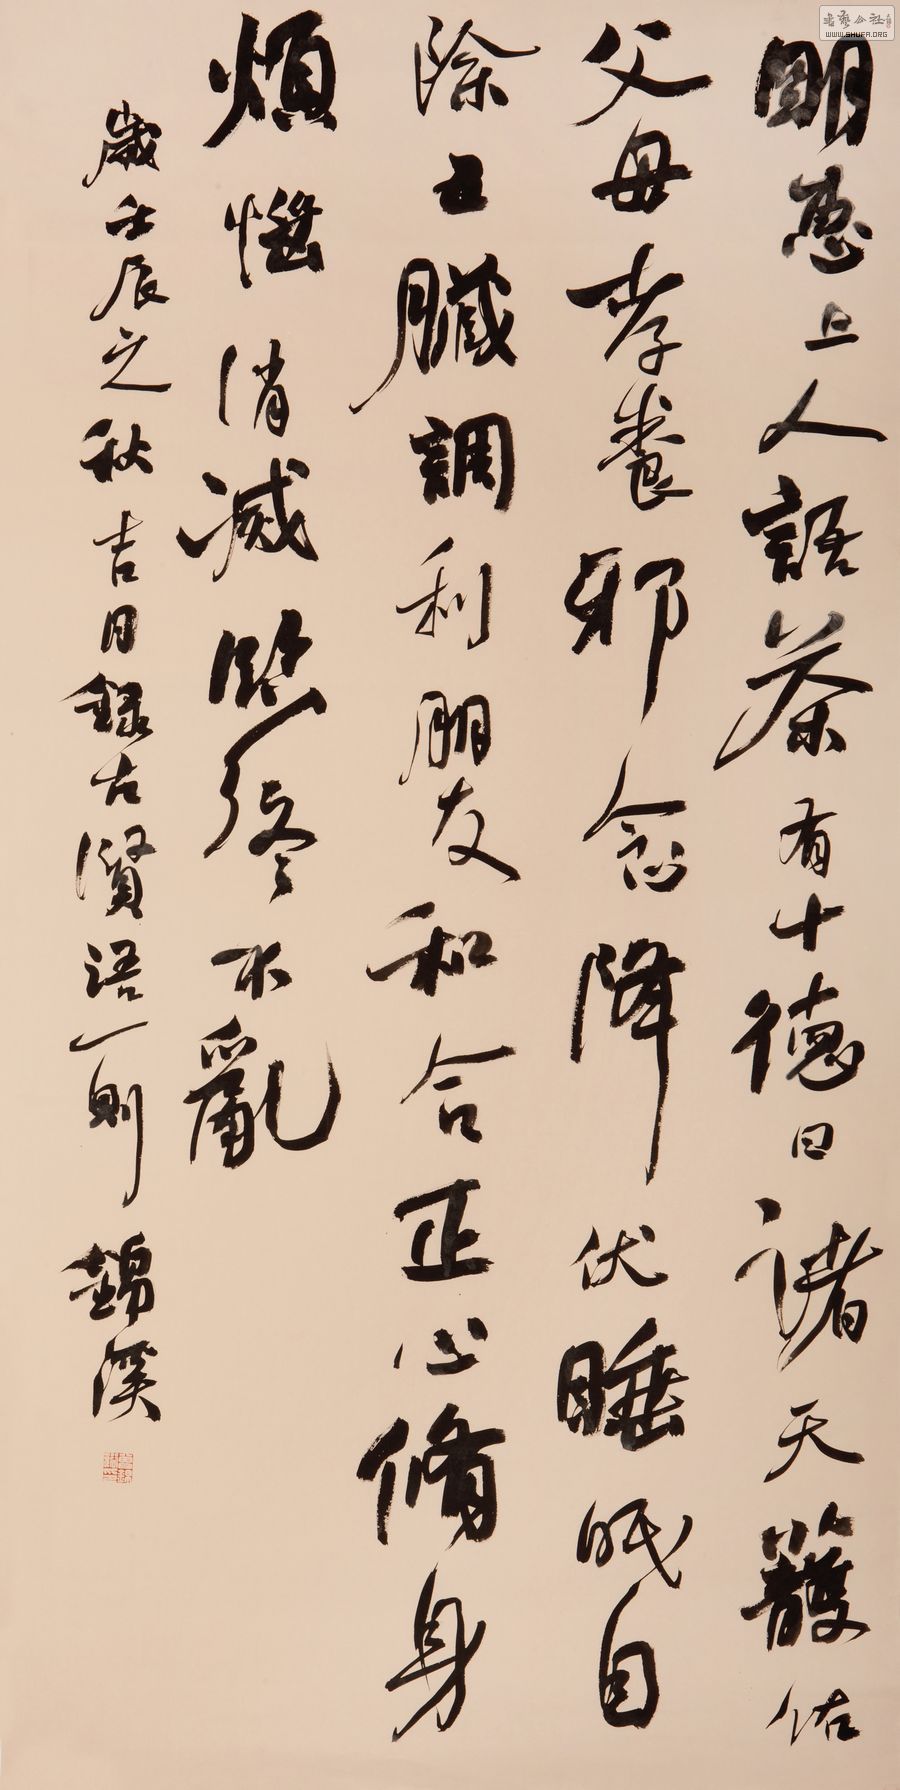 明惠上人語茶有十德曰諸天護佑
父母孝養邪念降伏睡眠自
除五臟調利朋友和合正心脩身
煩惱消滅臨終不亂
歲壬辰之秋吉日錄古賢語一則 錦溪
書藝公社
WWW.SHUFA.ORG